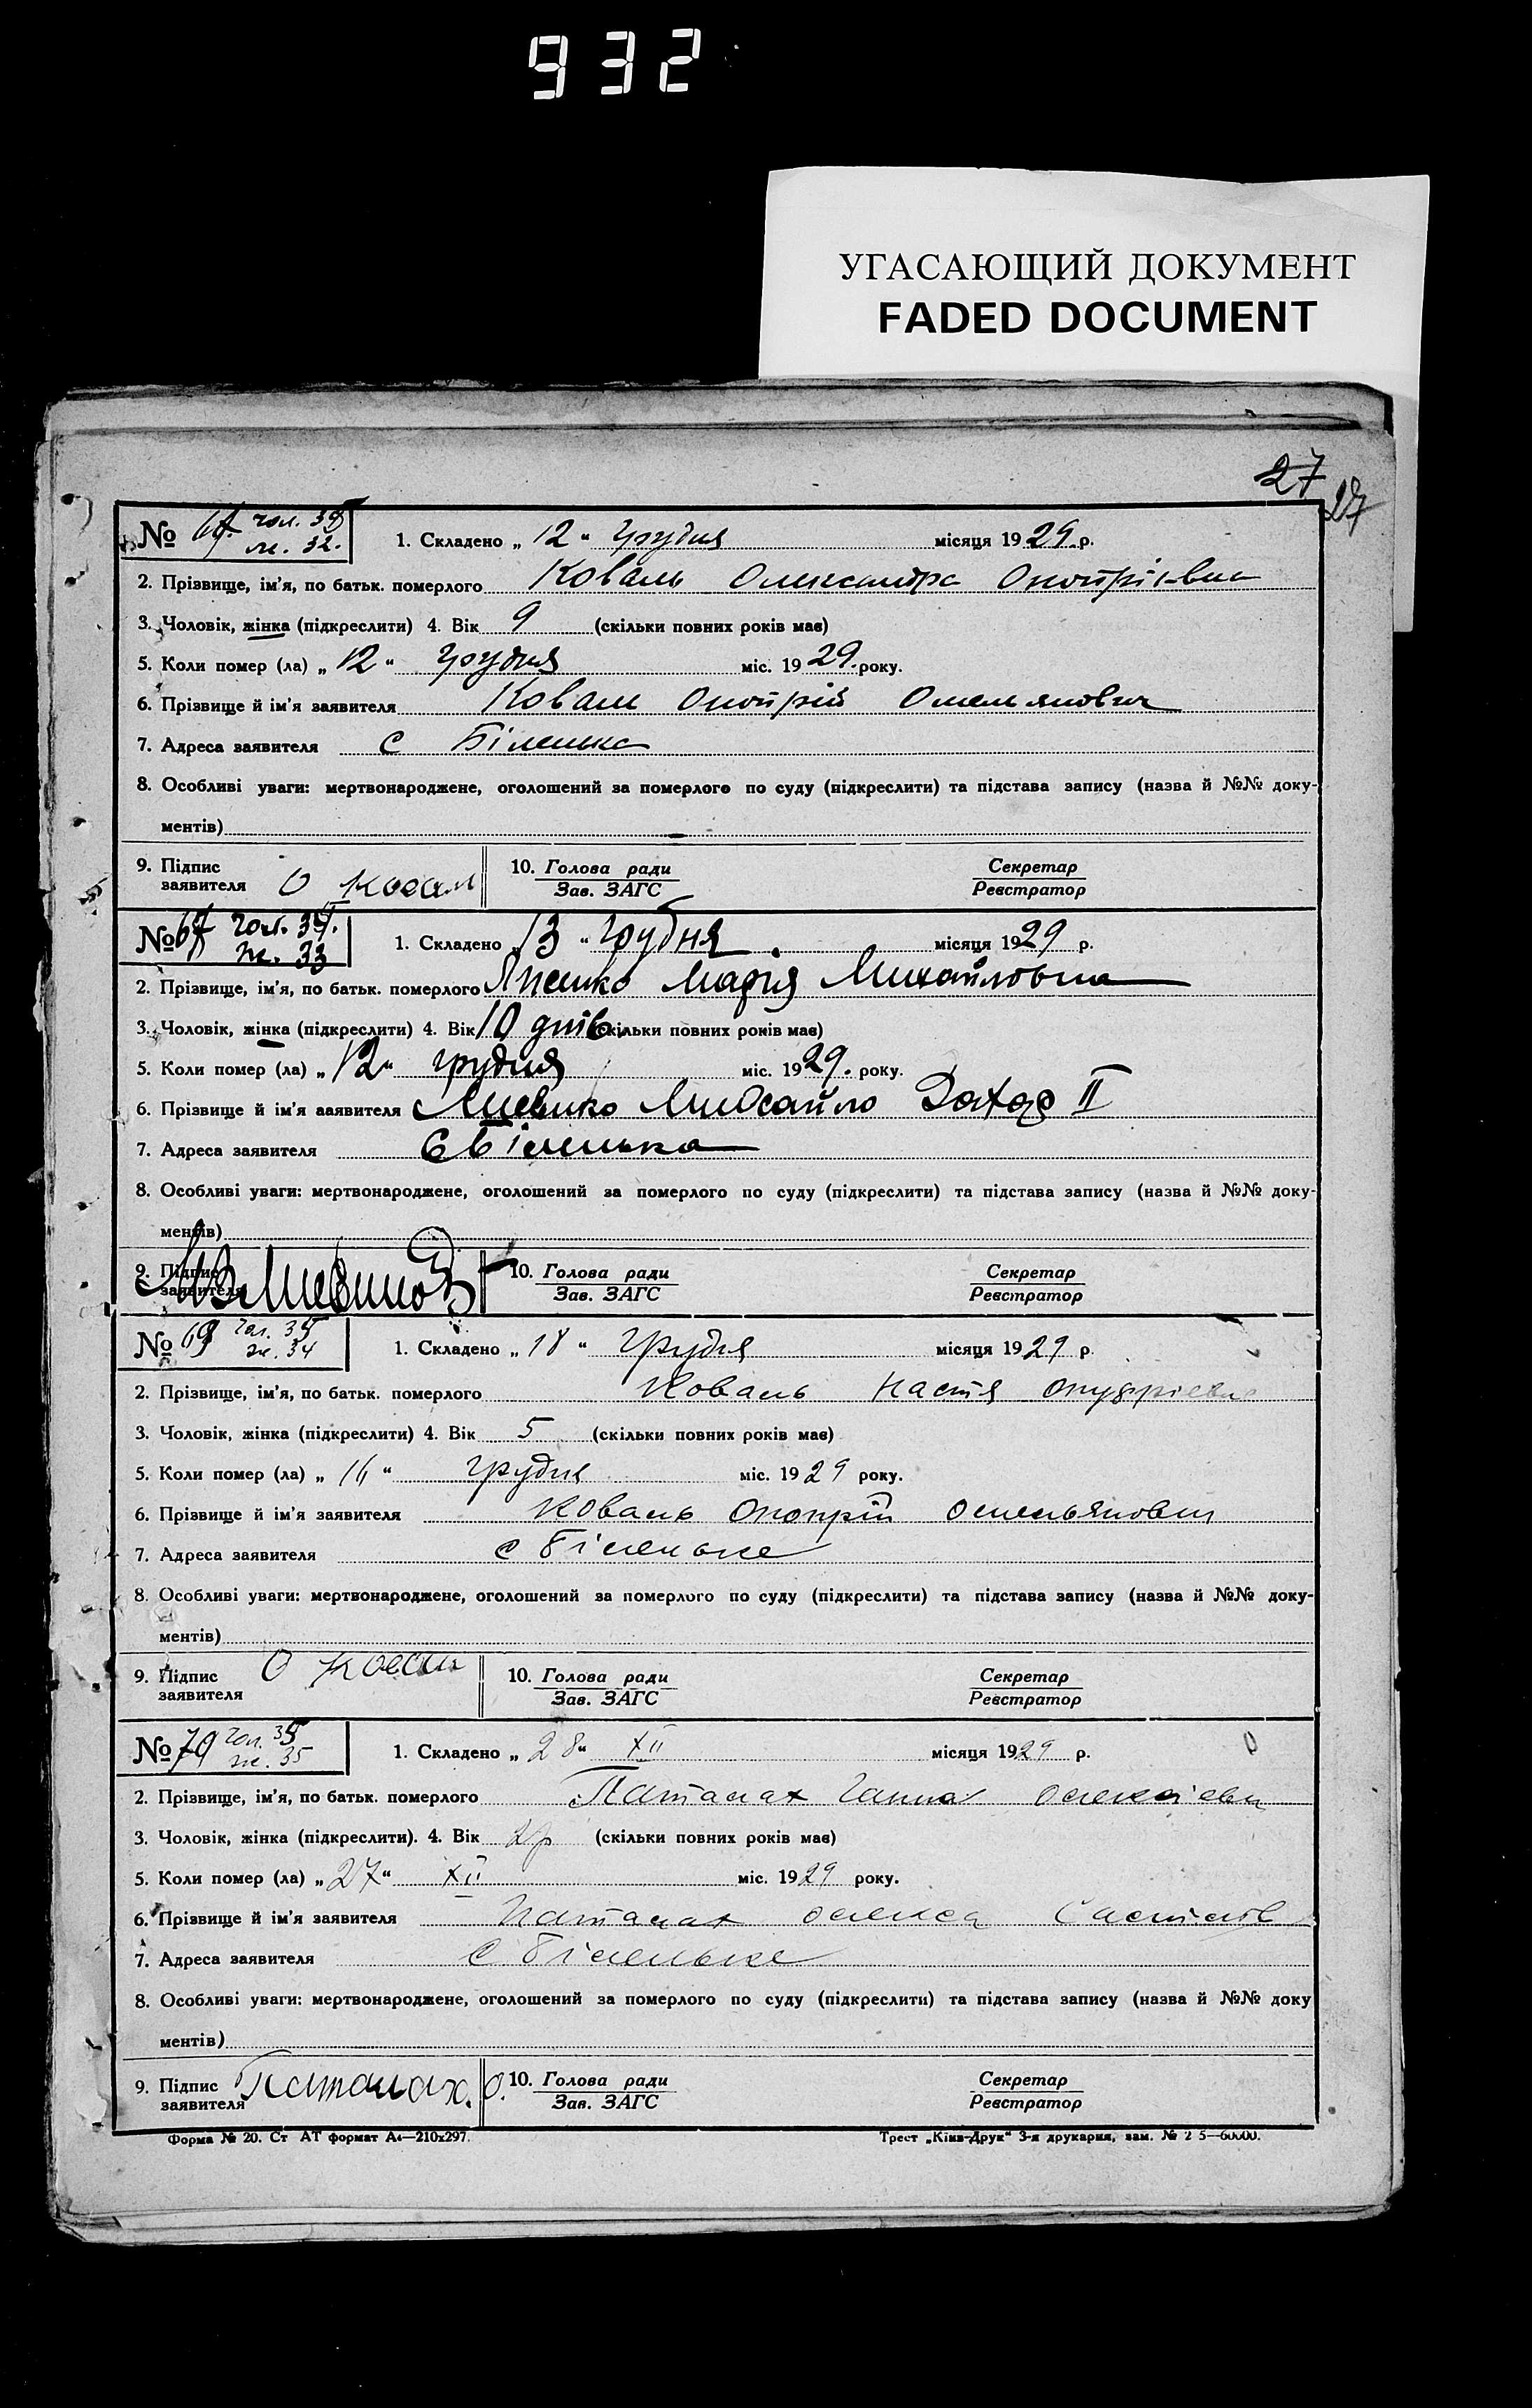 932
УГАСАЮЩИЙ ДОКУМЕНТ
FADED DOCUMENT
27
27
№ 67. чол. 35
ж. 32.
1. Складено „12“ грудня місяця 1929 р.
2. Прізвище, ім'я, по батьк. померлого Коваль Олександра
3. Чоловік, жінка (підкреслити) 4. Вік 9 (скільки повних років має)
5. Коли помер (ла) „12“ грудня міс. 1929. року.
6. Прізвище й ім'я заявителя Коваль Омелянович
7. Адреса заявителя с Біленька
8. Особливі уваги: мертвонароджене, оголошений за померлого по суду (підкреслити) та підстава запису (назва й №№ доку-
ментів)
9. Підпис заявителя О Коваль
10. Голова ради Секретар
Зав. ЗАГС Реєстратор
№ чол. 35.
ж. 33
1. Складено „13“ грудня місяця 1929 р.
2. Прізвище, ім'я, по батьк. померлого Марія Михайловна
3. Чоловік, жінка (підкреслити) 4. Вік 10 днів (скільки повних років має)
5. Коли помер (ла) „12“ грудня міс. 1929. року.
6. Прізвище й ім'я заявителя Михайло Захар II
7. Адреса заявителя Біленька
8. Особливі уваги: мертвонароджене, оголошений за померлого по суду (підкреслити) та підстава запису (назва й №№ доку-
ментів)
9. Підпис заявителя
10. Голова ради Секретар
Зав. ЗАГС Реєстратор
№ 69 чол. 35
ж. 34
1. Складено „18“ грудня місяця 1929 р.
2. Прізвище, ім'я, по батьк. померлого Коваль Настя
3. Чоловік, жінка (підкреслити) 4. Вік 5 (скільки повних років має)
5. Коли помер (ла) „16“ грудня міс. 1929 року.
6. Прізвище й ім'я заявителя Коваль Омельянович
7. Адреса заявителя с Біленьке
8. Особливі уваги: мертвонароджене, оголошений за померлого по суду (підкреслити) та підстава запису (назва й №№ доку-
ментів)
9. Підпис заявителя О Коваль
10. Голова ради Секретар
Зав. ЗАГС Реєстратор
№ 70 чол. 35
ж. 35
1. Складено „28“ XII місяця 1929 р.
2. Прізвище, ім'я, по батьк. померлого Паталах Ганна
3. Чоловік, жінка (підкреслити). 4. Вік 2р (скільки повних років має)
5. Коли помер (ла) „27“ XII міс. 1929 року.
6. Прізвище й ім'я заявителя Паталах Олекса
7. Адреса заявителя с Біленьке
8. Особливі уваги: мертвонароджене, оголошений за померлого по суду (підкреслити) та підстава запису (назва й №№ доку
ментів)
9. Підпис заявителя Паталах. О.
10. Голова ради Секретар
Зав. ЗАГС Реєстратор
Форма № 20. Ст АТ формат А4—210х297.
Трест „Київ-Друк“ 3-я друкарня, зам. № 2 5—60000.